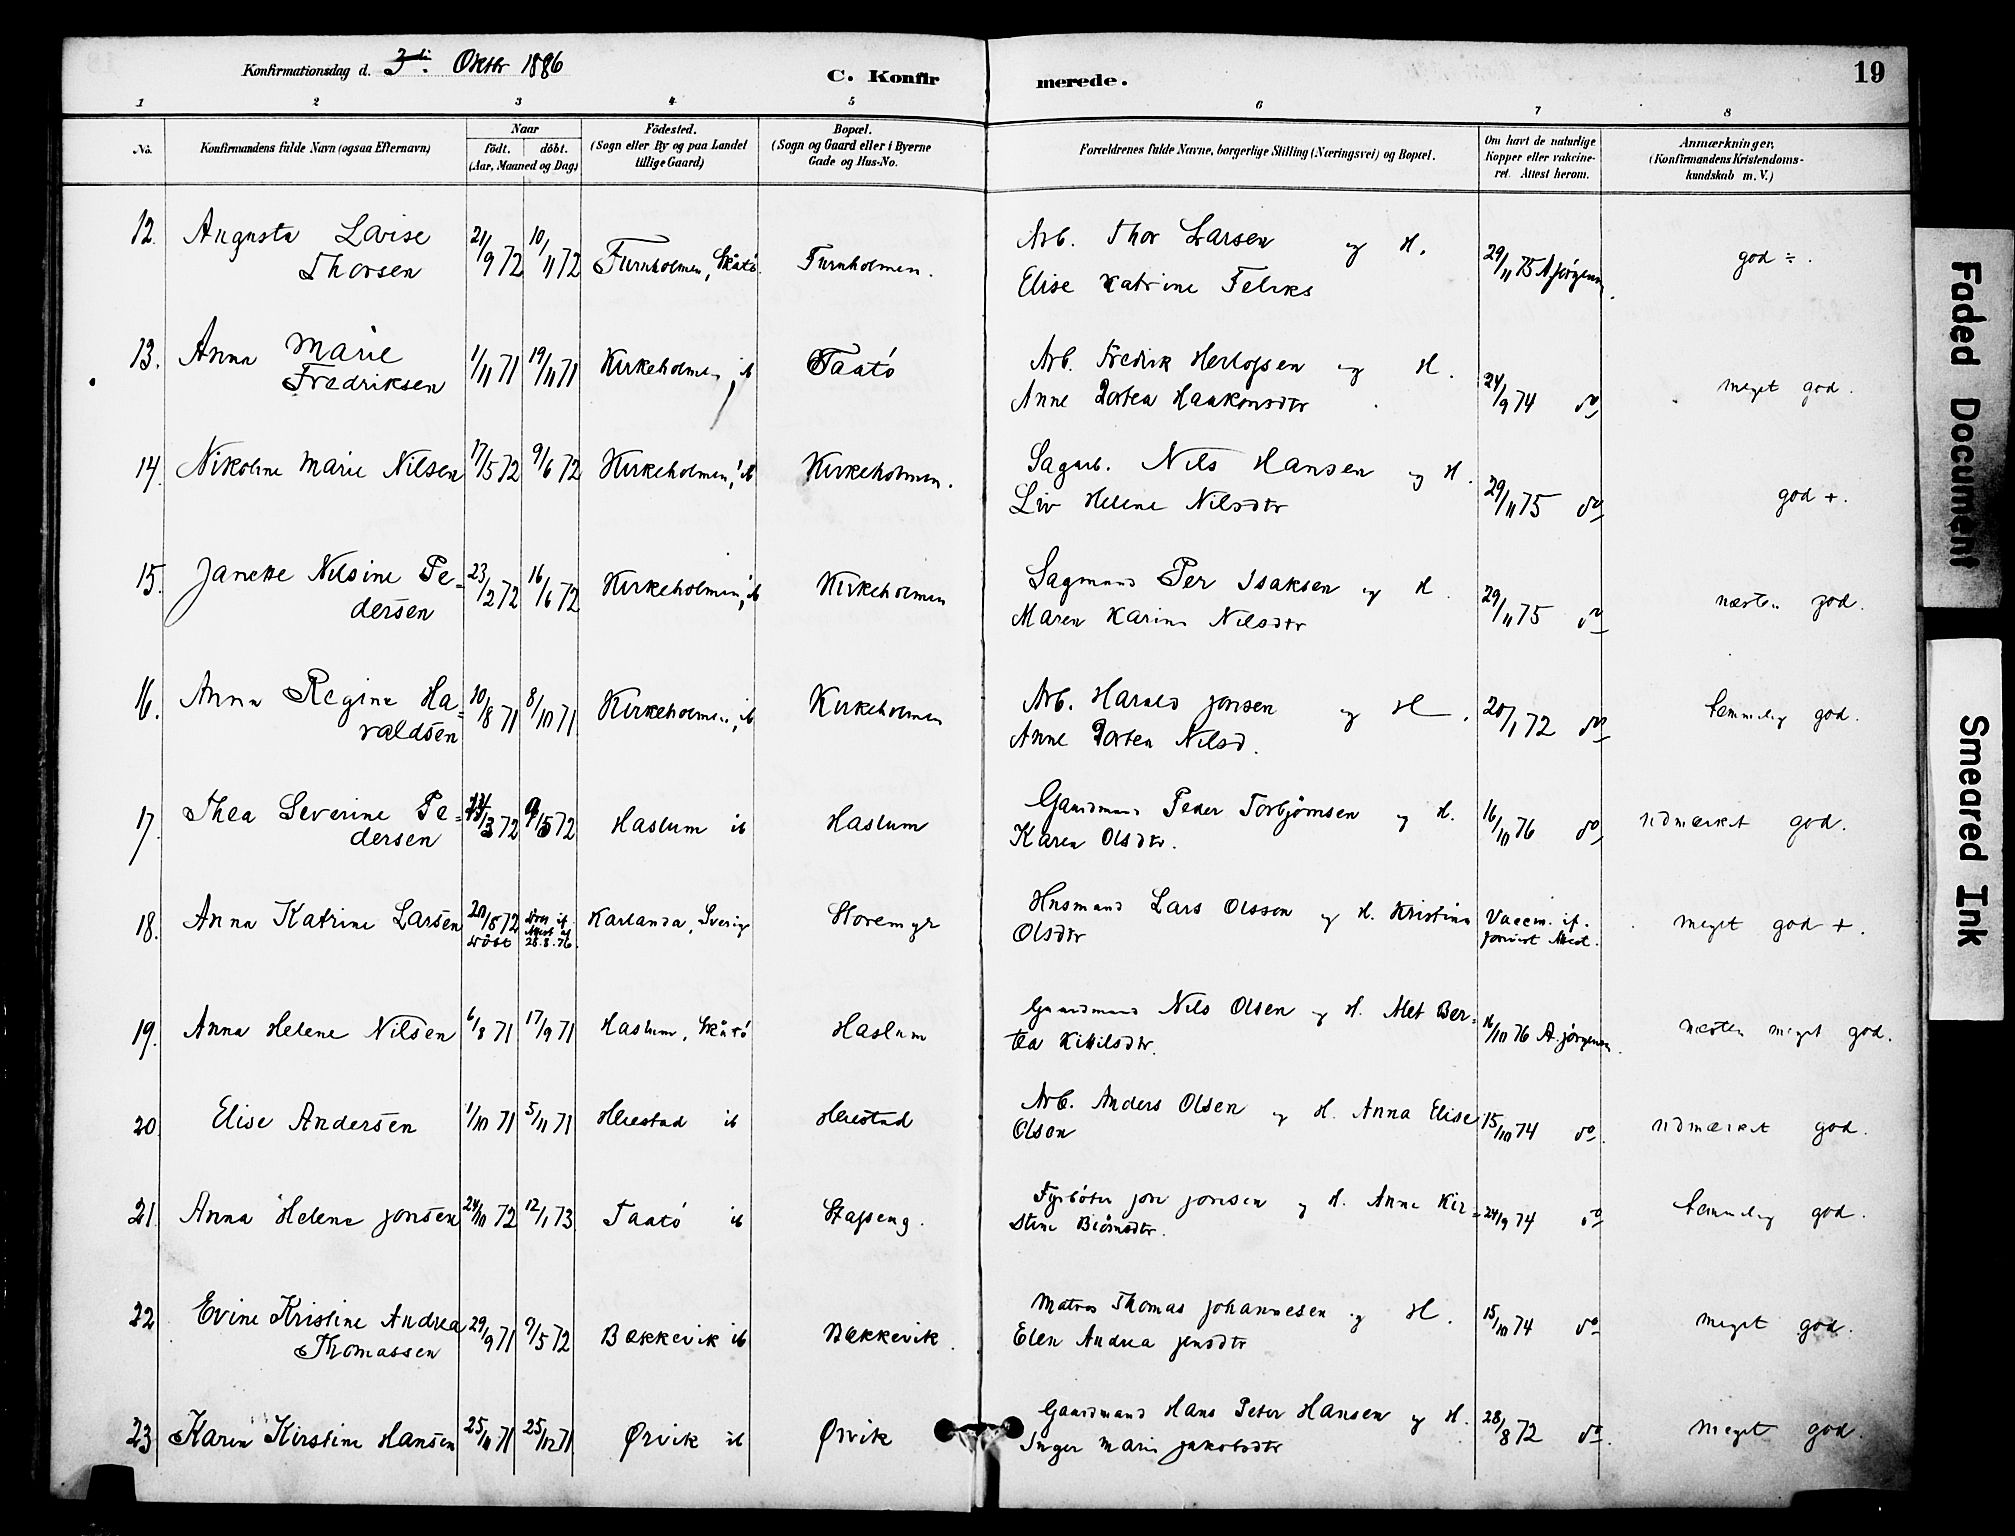 Konfirmationsdag d. 3di Oktbr 1886
C. Konfirmerede.
19
1 2 3 4 5 6 7 8
No.
Konfirmandens fulde Navn (ogsaa Efternavn)
Naar
födt. döbt.
(Aar, Maaned og Dag)
Födested.
(Sogn eller By og paa Landet
tillige Gaard)
Bopæl.
(Sogn og Gaard eller i Byerne
Gade og Hus-No.
Forældrenes fulde Navne, borgerlige Stilling (Næringsvei) og Bopæl.
Om havt de naturlige
Kopper eller vakcine-
ret. Attest herom.
Anmærkninger,
(Konfirmandens Kristendoms-
kundskab m. V.)
12. Augusta Lovise 21/9 72 10/11 72 Furuholmen, Skåtö. Furuholmen. Arb. Thor Larsen og H. 29/11 75 A. Jörgensen. god ÷.
Thorsen Elise Katrine Feliks
13. Anna Marie 1/11 71 19/11 71 Kirkeholmen, ib Taatö Arb. Fredrik Herlofsen og H. 24/9 74 do meget god.
Fredriksen Anne Dortea Haakonsdtr
14. Nikoline Marie Nilsen 17/5 72 9/6 72 Kirkeholmen, ib Kirkeholmen. Sagarb. Nils Hansen og H. 29/11 75 do god +.
Liv Helene Nilsdtr
15. Janette Nilsine Pe- 23/2 72 16/6 72 Kirkeholmen, ib Kirkeholmen Sagmand Per Isaksen og H. 29/11 75 do næsten god.
dersen Maren Karine Nilsdtr
16. Anna Regine Ha- 10/8 71 8/10 71 Kirkeholmen, ib Kirkeholmen Arb. Harald Jonsen og H. 20/1 72 do temmelig god.
raldsen Anne Dortea Nilsd.
17. Thea Severine Pe- /3 72 9/5 72 Haslum ib Haslum Gaardmand Peder Torbjörnsen og H. 16/10 76 do udmærket god.
dersen Karen Olsdtr.
18. Anna Katrine Larsen 20/5 72 Karlanda, Sverig Horemyr Husmand Lars Olsson og H. Kristina Vaccin. if. meget god +.
döbt if. Attest af 28.8.76 Olsdtr Attest.
19. Anna Helene Nilsen 6/8 71 17/9 71 Haslum, Skåtö Haslum Gaardmand Nils Olsen og H. Alet Ber- 16/10 76 A. Jörgensen. næsten meget god.
tea Kittilsdtr.
20. Elise Andersen 1/10 71 5/11 71 Herestad ib Herestad Arb. Anders Olsen og H. Anna Elise 15/10 74 do. udmærket god.
Olsen
21. Anna Helene Jonsen 24/10 72 12/1 73 Taatö ib Stapseng. Fyrböter Jon Jonsen og H. Anne Kir- 24/9 74 do temmelig god.
stine Biörnsdtr.
22 Evine Kristine Andrea 29/9 71 9/5 72 Bækkevik ib Bækkevik. Matros Thomas Johannesen og H. 15/10 74 do meget god.
Thomassen Elen Andrea Jensdtr
23 Karen Kirstine Hansen 25/11 71 25/12 71 Ørvik ib Ørvik Gaardmand Hans Peter Hansen og H. 28/8 72 do. meget god.
Inger Marie Jakobsdtr
Faded Document
Smeared Ink